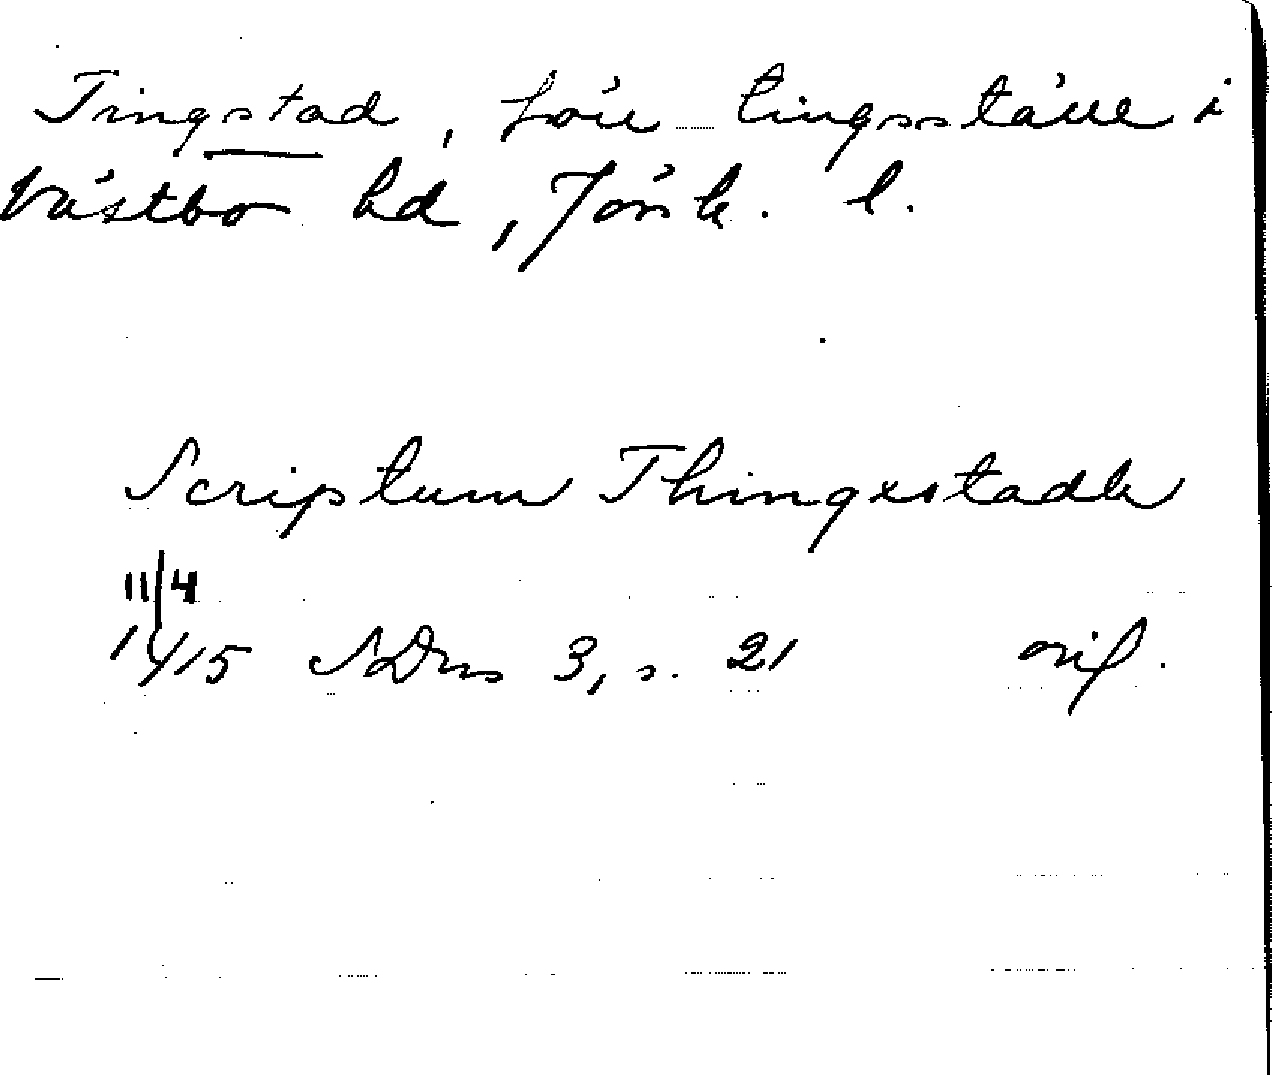 Tingstad, förr tingsställe i
Västbo hd, Jönk. l.
Scriptum Thingxstadh
11/4
1415 SDns 3, s. 21 orig.